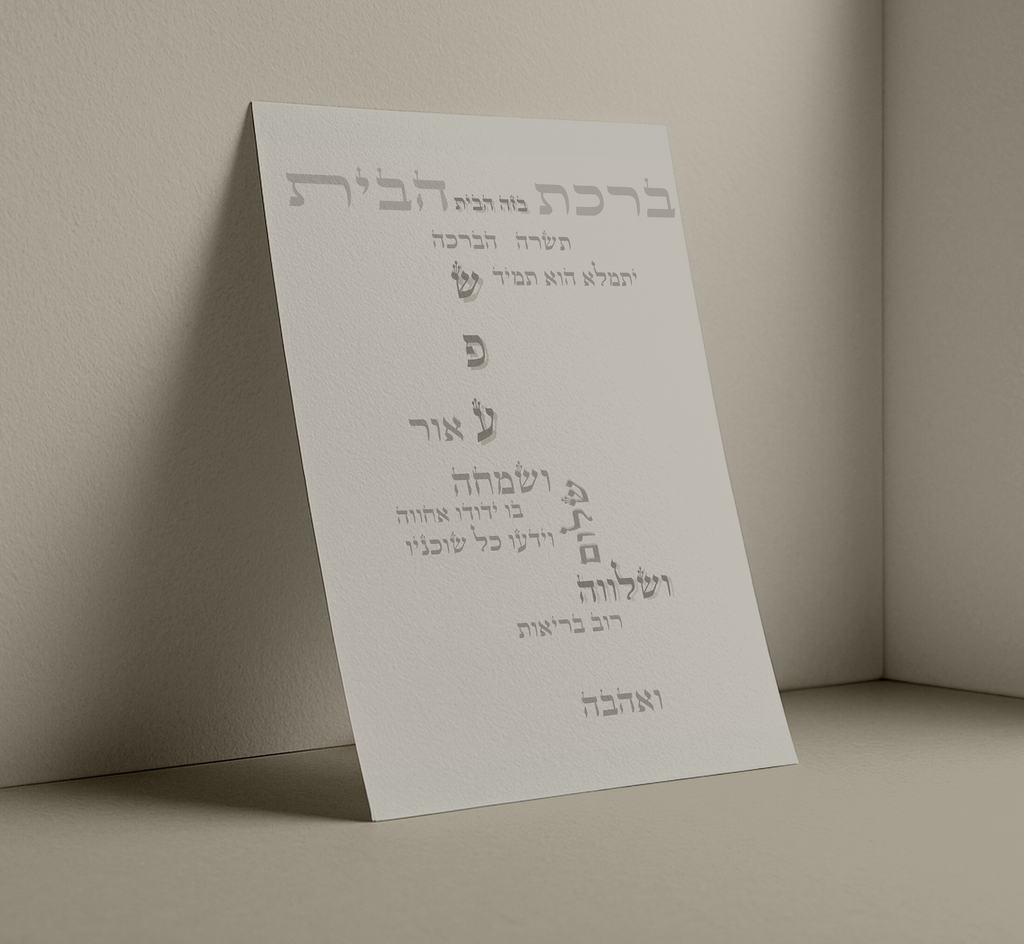 ברכת הבית
בזה הבית
תשרה הברכה
יתמלא הוא תמיד
שפע
אור
ושמחה
בו ידודו אחווה
וידעו כל שוכניו
שלום
ושלווה
רוב בריאות
ואהבה